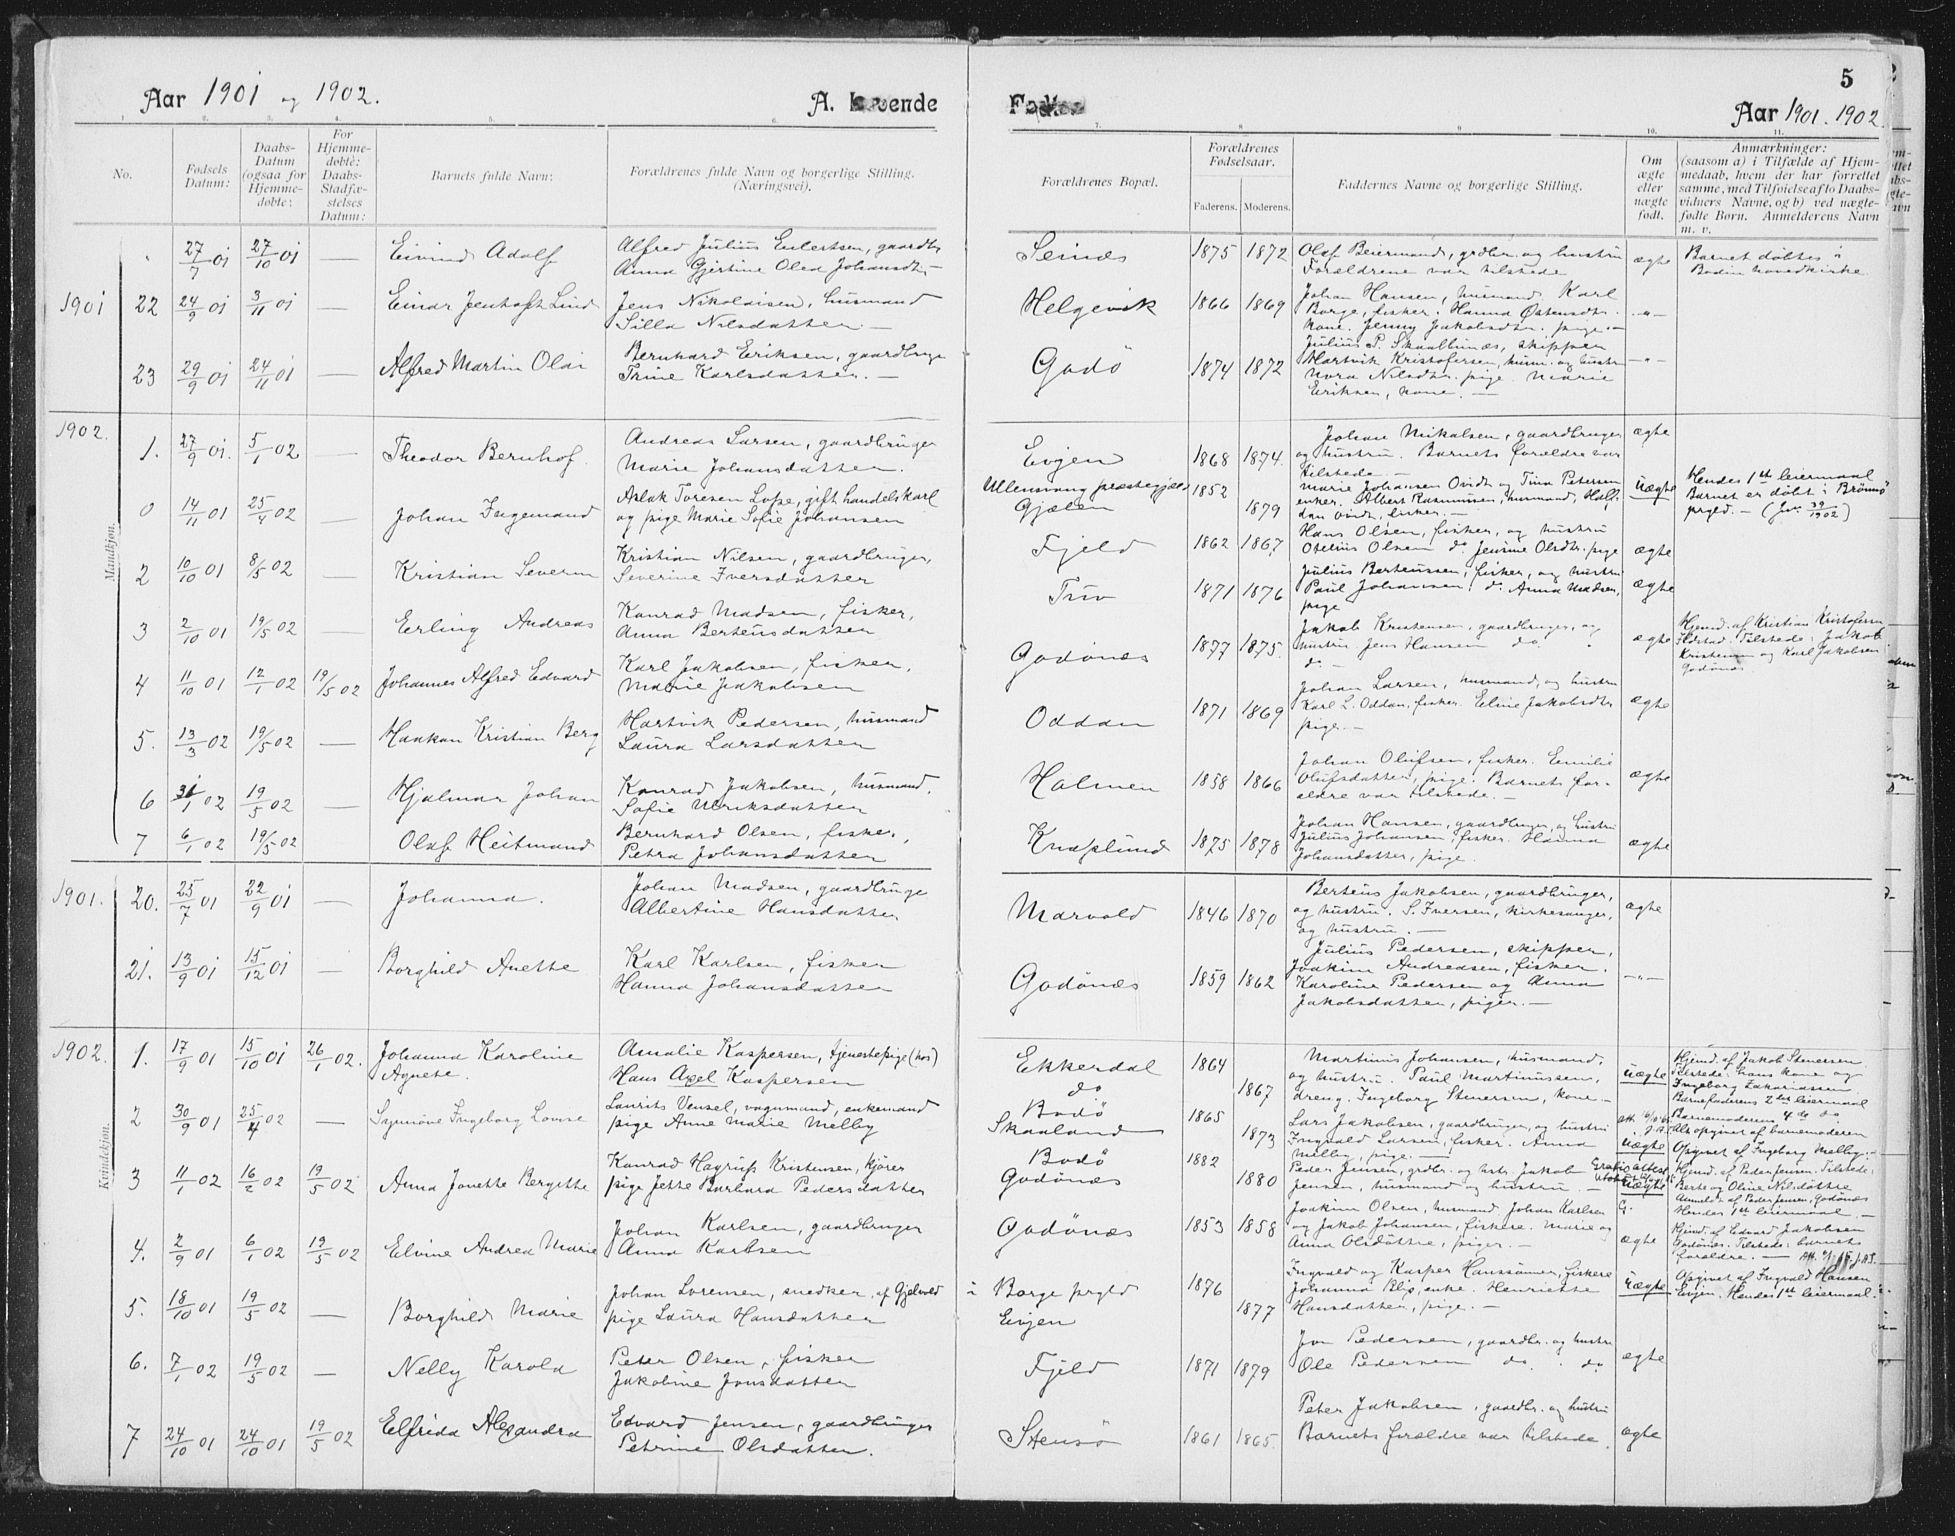 Aar 1901 og 1902.
A. Levende
Fødte
5
Aar 1901. 1902.
No.
Fødsels Datum:
Daabs-Datum (ogsaa for Hjemme-døbte:
For Hjemme-døbte: Daabs-Stadfæ-stelses Datum:
Barnets fulde Navn:
Forældrenes fulde Navn og borgerlige Stilling. (Næringsvei).
Forældrenes Bopæl.
Forældrenes Fødselsaar.
Faderens. Moderens.
Faddernes Navne og borgerlige Stilling.
Om ægte eller uægte født.
Anmærkninger: (saasom a) i Tilfælde af Hjem-medaab, hvem der har forrettet samme, med Tilføielse af to Daabs-vidners Navne, og b) ved uægte-fødte Børn. Anmelderens Navn m. v.
Mandkjøn.
27/7 01 27/10 01 — Eivind Adolf
Alfred Julius Eilertsen, gaardbr.
Anna Gjertine Olea Johansdtr. —
Seines 1875 1872
Olaf Beiermand, grdbr. og hustru
Forældrene var tilstede
ægte
Barnet døbtes i
Bodin hovedkirke
1901 22 24/9 01 3/11 01 — Einar Jentoft Lind
Jens Nikolaisen, husmand
Silla Nilsdatter —
Helgevik 1866 1869
Johan Hansen, husmand. Karl
Borge, fisker. Hanna Østensdtr.
kone. Jenny Jakobsdtr. pige. —
-"-
23 29/9 01 24/11 01 — Alfred Martin Olai
Bernhard Eriksen, gaardbruge
Trine Karlsdatter. —
Godø 1874 1872
Julius P. Skaalbunæs, skipper
Hartvik Kristofersen, husm. og hustr.
Nora Nilsdtr. pige. Marie
Eriksen, kone. —
-"-
1902. 1. 27/9 01. 5/1 02 — Theodor Bernhof.
Andreas Larsen, gaardbruger
Marie Johansdatter.
Evjen 1868 1874.
Johan Mikalsen, gaardbruger
og hustru. Barnets forældre var
tilstede. —
ægte
0 14/11 01 25/4 02 — Johan Ingemand
Aslak Toresen Lofse, gift handelskarl
og pige Marie Sofie Johansen
Ullensvang præstegjæld 1852
Gjælen 1879
Marie Johansen Ovidt og Tina Petersen
enker. Albert Rasmussen, husmand, Half-
dan Ovidt, fisker. —
uægte
Hendes 1st leiermaal
Barnet er døbt i Brønnø
prgld. — (Jvr. 39/1902)
2 10/10 01 8/5 02 — Kristian Severin
Kristian Nilsen, gaardbruger,
Severine Iversdatter
Fjeld 1862 1867
Hans Olsen, fisker, og hustru
Otelius Olsen do. Jensine Olsdtr. pige
ægte
3 2/10 01 19/5 02 — Erling Andreas
Konrad Madsen, fisker,
Anna Berteusdatter
Tuv 1871 1876
Julius Berteussen, fisker, og hustru
Paul Johansen, do. Anna Madsen,
pige
ægte
4 11/10 01 12/1 02 19/5 02 Johannes Alfred Edvard
Karl Jakobsen, fisker,
Marie Jakobsen
Godønes 1877 1875.
Jakob Kristensen, gaardbruger, og
hustru. Jens Hansen do.
do. —
ægte
Hjemd. af Kristian Kristofersen
Ildstad. Tilstede: Jakob
Kristensen og Karl Jakobsen
Godønæs.
5. 13/3 02 19/5 02 — Haakon Kristian Berg
Hartvik Pedersen, husmand
Laura Larsdatter
Oddan 1871 1869
Johan Larsen, husmand, og hustru
Karl L. Oddan, fisker. Eline Jakobsdtr.
pige. —
ægte
6 31/1 02 19/5 02 — Hjalmar Johan
Konrad Jakobsen, husmand.
Sofie Ulriksdatter
Holmen 1858 1866
Johan Olufsen, fisker. Emilie
Olufsdatter, pige. Barnets for-
ældre var tilstede. —
ægte
7 6/1 02 19/5 02 Olaf Heitmand
Bernhard Olsen, fisker,
Petra Johansdatter
Knaplund 1875 1878
Johan Hansen, gaardbruger, og hustru
Julius Johansen, fisker. Hanna
Johansdatter, pige.
ægte
Kvindekjøn.
1901. 20. 25/7 01 22/9 01 — Johanna.
Johan Madsen, gaardbruge
Albertine Hansdatter
Marvold 1846 1870
Berteus Jakobsen, gaardbruger,
og hustru. S. Iversen, kirkesanger,
og hustru. —
ægte
21. 13/9 01 15/12 01 — Borghild Anette
Karl Karlsen, fisker
Hanna Johansdatter
Godønæs 1859 1862
Julius Pedersen, skipper,
Joakim Andreasen, fisker.
Karoline Pedersen og Anna
Jakobsdatter, piger. —
-"-
1902. 1. 17/9 01 15/10 01 26/1 02. Johanna Karoline
Agnete.
Amalie Kaspersen, tjenestepige (hos)
Hans Axel Kaspersen
Ekkerdal 1864
do 1867
Martinus Johansen, husmand,
og hustru. Paul Martinussen,
dreng. Ingeborg Stenersen, kone. —
uægte
Hjemd. af Jakob Stenersen
Tilstede: hans kone og
Ingeborg Zakariassen
Barnefaderens 2det leiermaal
Barnemoderens 4 do do
2 30/9 01 25/4 02 — Synnøve Ingeborg Lovise
Laurits Vensel, vognmand, enkemand
pige Anne Marie Melby
Bodø 1865
Skaaland 1873
Lars Jakobsen, gaardbruger, og hustru
Ingvald Larsen, fisker. Anna
Melby, pige. —
uægte
Als opgivet af barnemoderen
Opgivet af Ingeborg Melby. —
3 11/1 02 16/2 02 19/5 02 Anna Jonette Bergitte
Konrad Hagrup Kristensen, kjører
pige Jette Barbara Pedersdatter
Bodø 1882
Godønæs 1880
Peder Jensen, grdbr. og hstr. Jakob
Jensen, husmand og hustru. —
Gratis attest
uægte
Hjemd. af Peder Jensen. Tilstede:
Berte og Oline Nilsdøttre
Anmeldt af Peder Jensen, Godønæs
Hendes 1st leiermaal. —
4. 2/9 01 6/1 02 19/5 02 Elvine Andrea Marie
Johan Karlsen, gaardbruger
Anna Karlsen
Godønæs 1853 1858
Joakim Olsen, husmand. Johan Karlsen
og Jakob Johansen, fiskere. Marie og
Anna Olsdøttre, piger. —
G.
ægte
Hjemd. af Edvard Jakobsen
Godønæs. Tilstede: barnets
forældre. —
5. 18/10 01 19/5 02 — Borghild Marie
Johan Lorensen, snedker, af Gjelvold
pige Laura Hansdatter
i Borge prgld 1876
Evjen 1877
Ingvald og Kasper Hanssønner, fiskere
Johanna Blix, enke. Henriette
Hansdatter, pige. —
uægte
Opgivet af Ingvald Hansen
Evjen. Hendes 1st leiermaal.
6. 7/1 02 19/5 02 — Nelly Karola
Peter Olsen, fisker
Jakobine Jonsdatter
Fjeld 1871 1879
Jon Pedersen, gaardbr. og hustru
Ole Pedersen do. do.
ægte
7 24/10 01 24/10 01 19/5 02 Elfrida Alexandra
Edvard Jensen, gaardbruger
Petrine Olsdatter.
Stensø 1861 1865.
Peter Jakobsen, gaardbr. og hustru
Barnets forældre var tilstede.
ægte